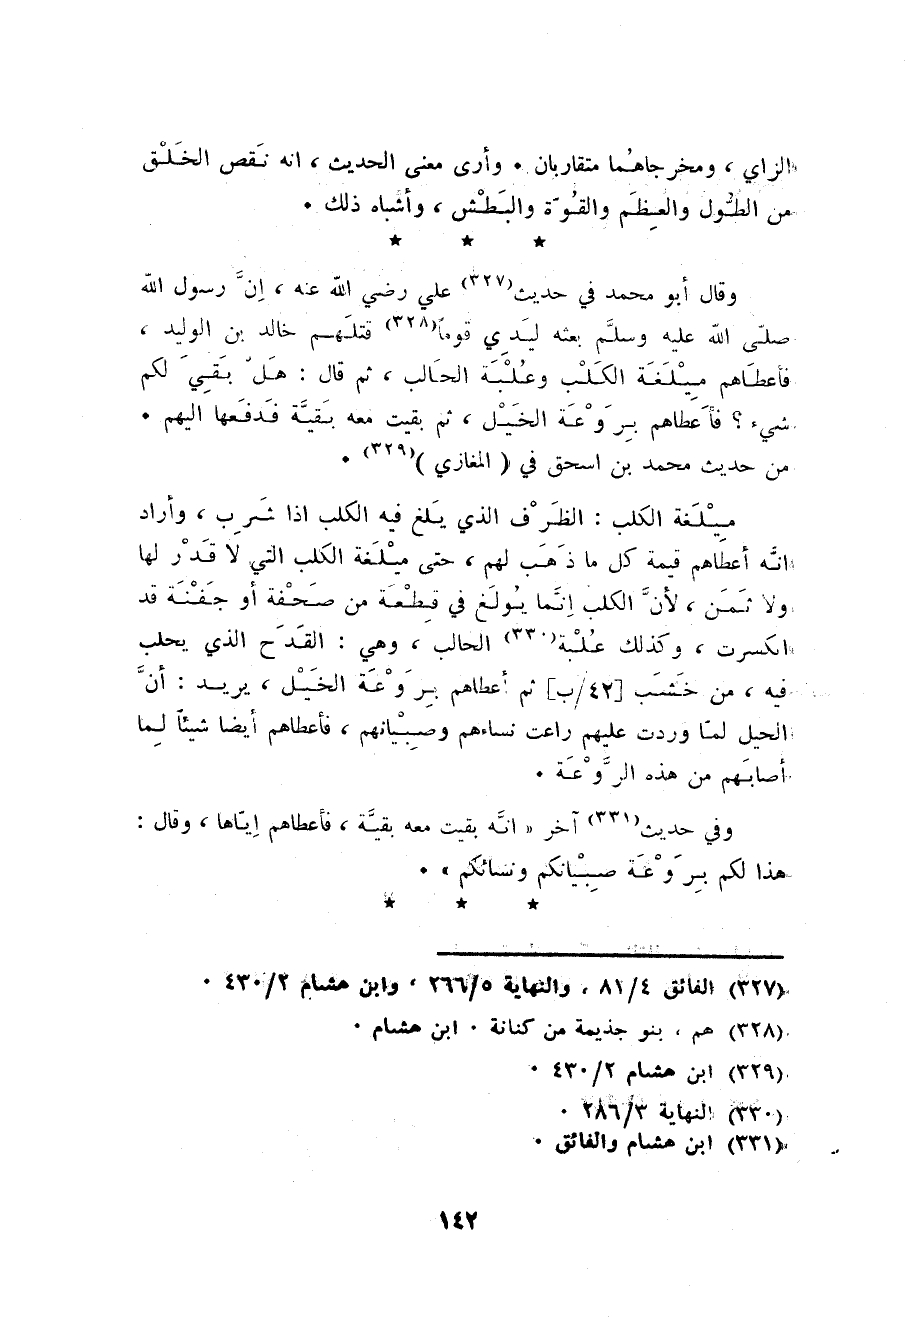 الزاي ، ومخرجاهُما متقاربان • وأرى معنى الحديث ، انه نَقص الخَلْق
من الطُّول والعِظَم والقُوّة والبَطْش ، وأشباه ذلك •
★ ★ ★
وقال أبو محمد في حديث(٣٢٧) علي رضي الله عنه ، إنَّ رسول الله
صلّى الله عليه وسلَّم بعثه ليَدِي قوماً(٣٢٨) قتلَهم خالد بن الوليد ،
فأعطاهم مِيْلَغَة الكَلْب وعُلْبَة الحَالب ، ثم قال : هَلْ بَقيَ لكم
شيء ؟ فأَعطاهم بِرَوْعَة الخَيْل ، ثم بقيت معه بَقيَّة فدَفعَها اليهم •
من حديث محمد بن اسحق في ( المغازي )(٣٢٩) •
مِيْلَغة الكلب : الظَرْف الذي يَلغ فيه الكلب اذا شَرِب ، وأراد
انَّه أعطاهم قيمة كل ما ذَهَب لهم ، حتى ميْلَغة الكلب التي لا قَدْر لها
ولا ثمَن ، لأنَّ الكلب إنَّما يُولَغ في قِطْعَة من صَحْفة أو جَفْنَة قد
انكسرت ، وكذلك عُلْبة(٣٣٠) الحالب ، وهي : القَدَح الذي يحلب
فيه ، من خَشَب [٤٢/ب] ثم أعطاهم بِرَوْعَة الخَيْل ، يريد : أنَّ
الخيل لمّا وردت عليهم راعت نساءهم وصِبْيانهم ، فأعطاهم أيضا شيئاً لِما
أصابَهم من هذه الرَّوْعَة •
وفي حديث(٣٣١) آخر « انَّه بقيت معه بقيَّة ، فأعطاهم إيّاها ، وقال :
هذا لكم بِرَوْعَة صِبْيانكم ونسائكم » •
★ ★ ★
(٣٢٧) الفائق ٨١/٤ ، والنهاية ٢٦٦/٥ ، وابن هشام ٤٣٠/٢ •
(٣٢٨) هم ، بنو جذيمة من كنانة • ابن هشام •
(٣٢٩) ابن هشام ٤٣٠/٢ •
(٣٣٠) النهاية ٢٨٦/٣ •
(٣٣١) ابن هشام والفائق •
١٤٢